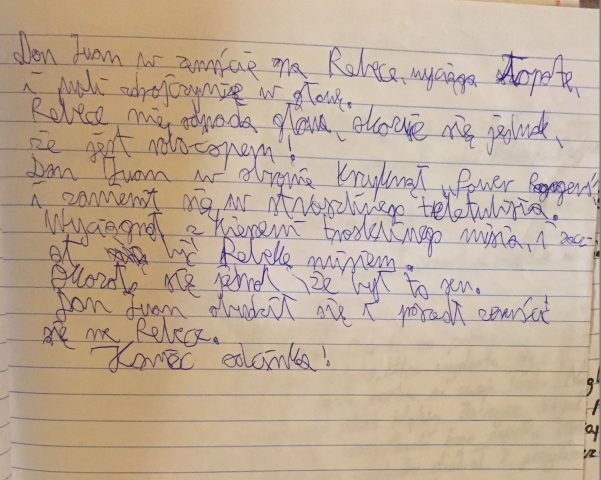 Don Juan w zemście na Rebece, wyciąga łopatę,
i wali zdrajczynię w głowę.
Rebece nie odpada głowa, okazuje się jednak,
że jest robocopem!
Don Juan w obronie krzyknął „Power
i zamienił się w straszliwego teletubisia.
Wyciągnął z kieszeni troskliwego misia, i zacz-
ął bić Rebekę misiem.
Okazało się jednak, że był to sen.
Don Juan obudził się i poszedł zemścić
się na Rebece.
Koniec odcinka!